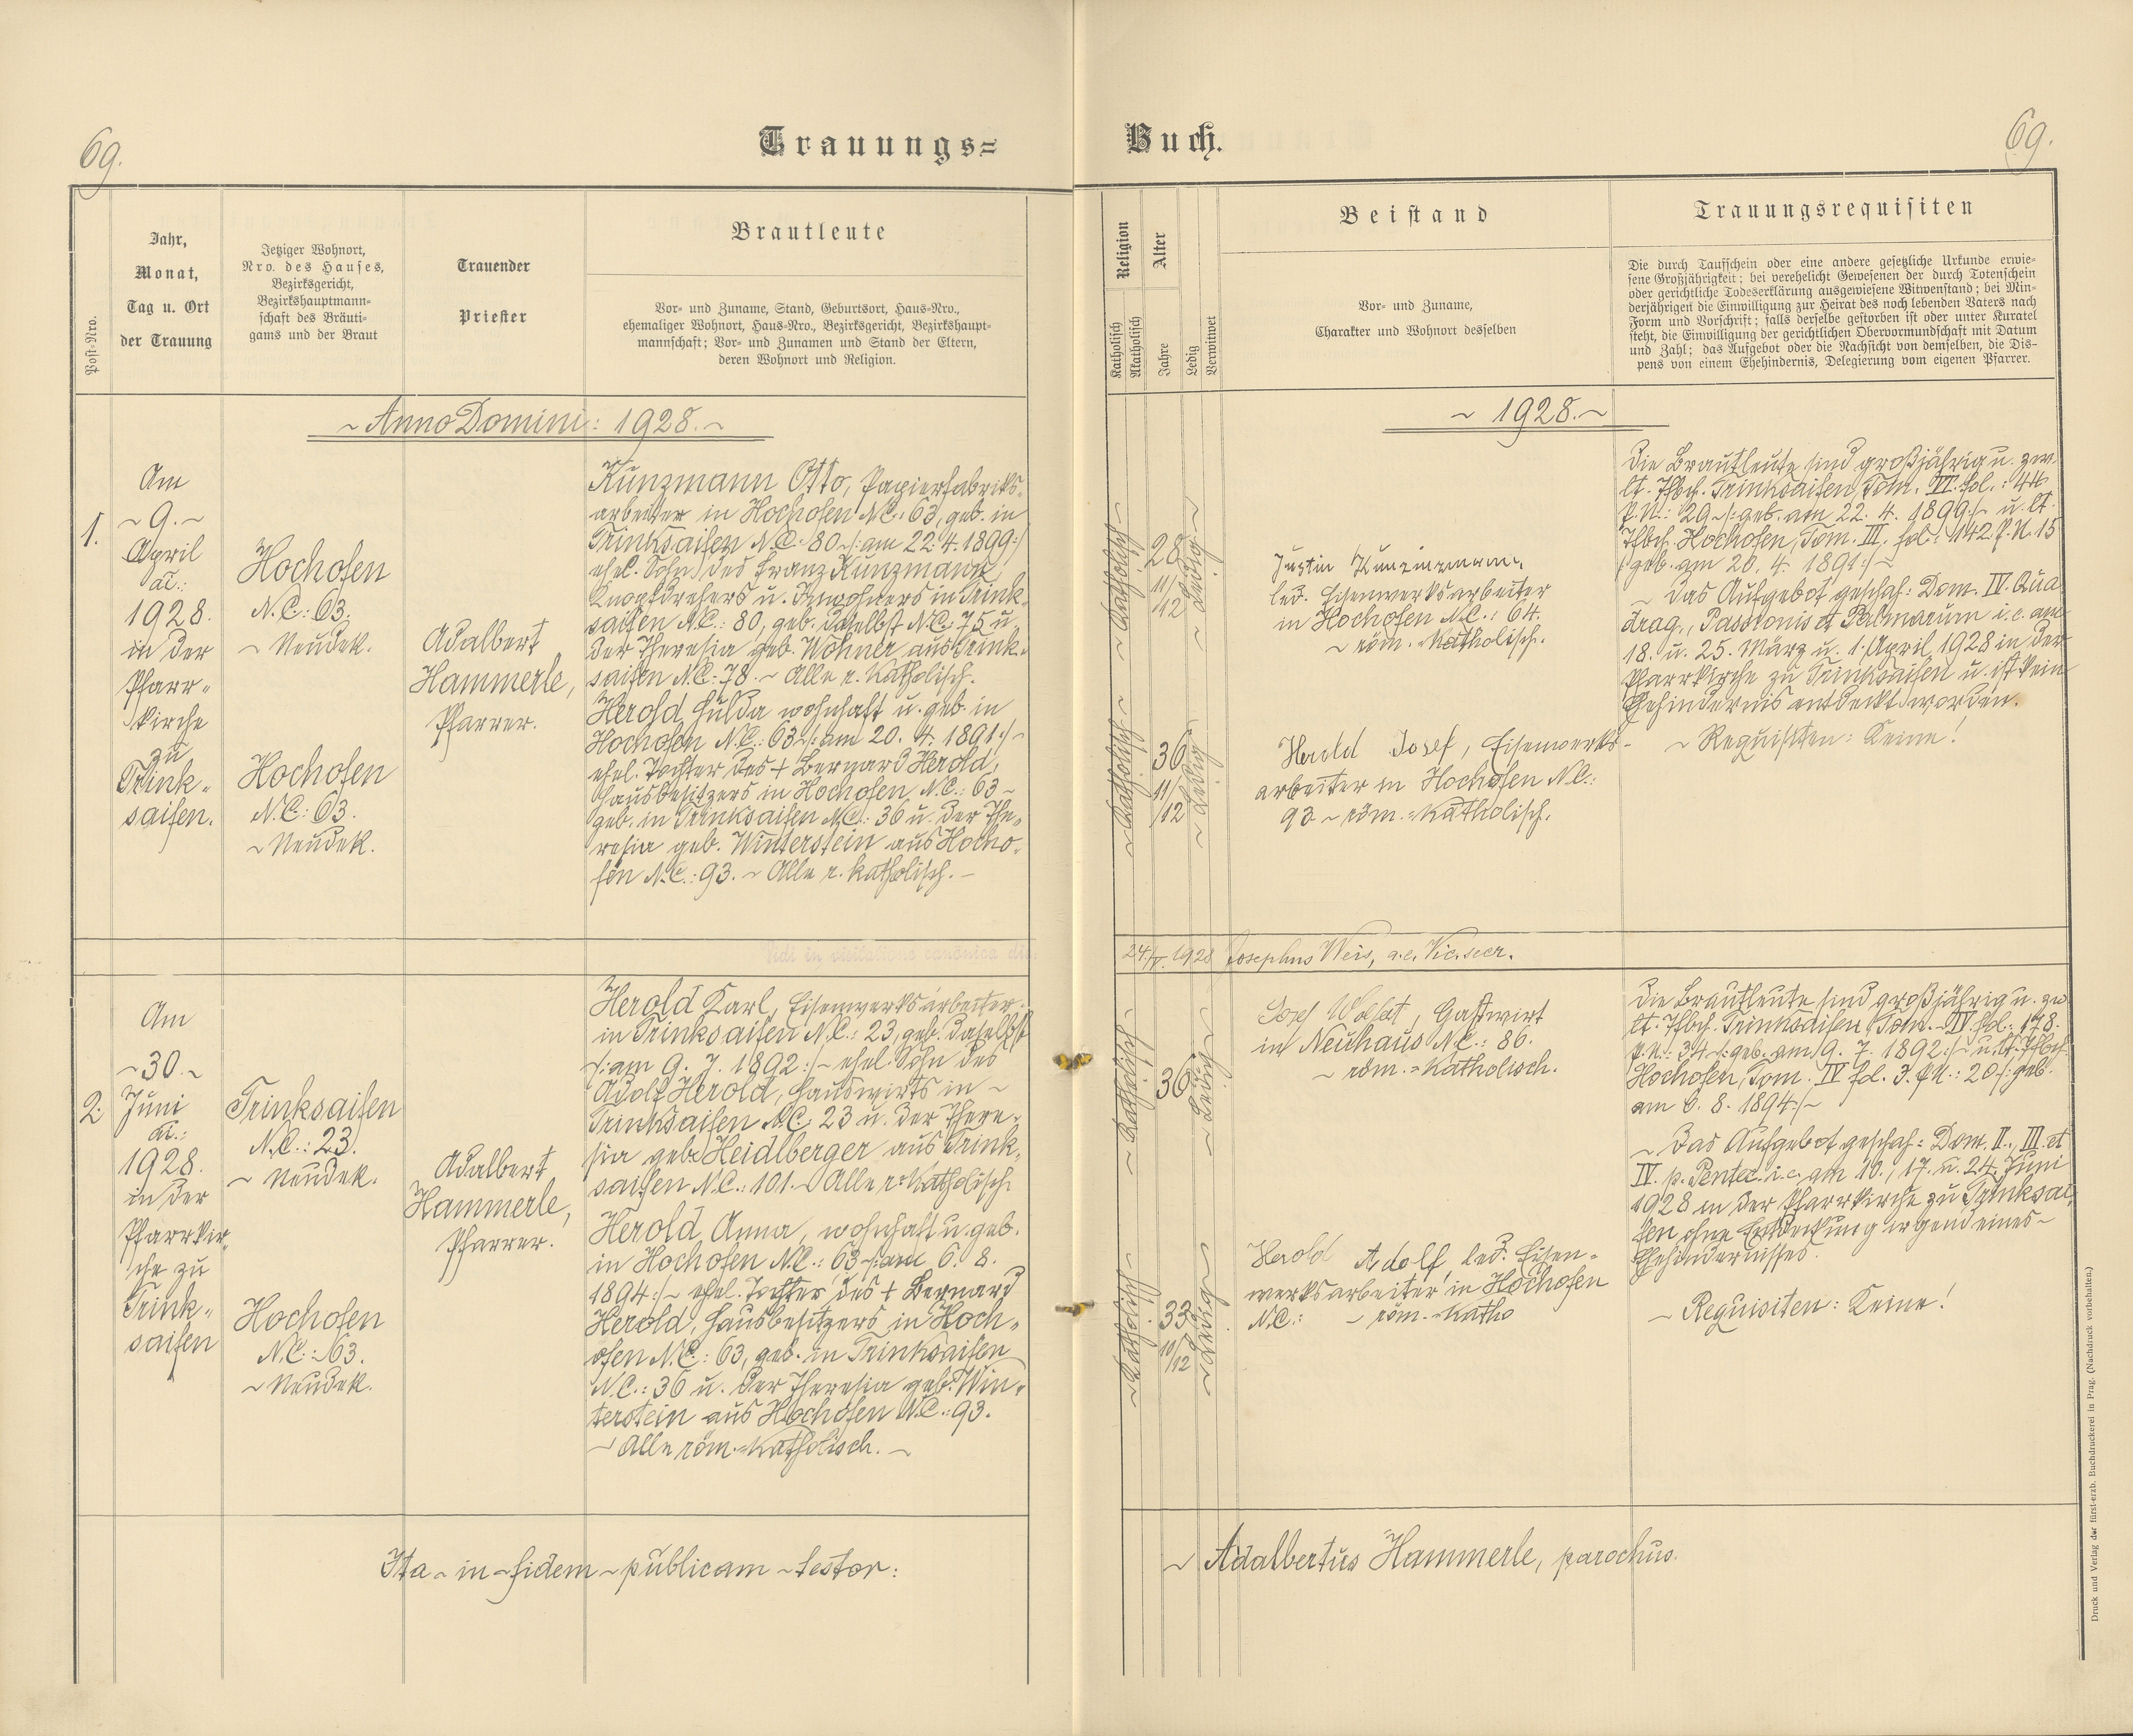 69.
Trauungs=
Buch.
69.
Post-Nro.
Jahr,
Monat,
Tag u. Ort
der Trauung
Jetziger Wohnort,
Nro. des Hauses,
Bezirksgericht,
Bezirkshauptmann=
schaft des Bräuti=
gams und der Braut
Trauender
Priester
Brautleute
Vor= und Zuname, Stand, Geburtsort, Haus=Nro.,
ehemaliger Wohnort, Haus=Nro., Bezirksgericht, Bezirkshaupt=
mannschaft; Vor= und Zunamen und Stand der Eltern,
deren Wohnort und Religion.
Religion
Katholisch
Akatholisch
Alter
Jahre
Ledig
Verwitwet
Beistand
Vor= und Zuname,
Charakter und Wohnort desselben
Trauungsrequisiten
Die durch Taufschein oder eine andere gesetzliche Urkunde erwie=
sene Großjährigkeit; bei verehelicht Gewesenen der durch Totenschein
oder gerichtliche Todeserklärung ausgewiesene Witwenstand; bei Min=
derjährigen die Einwilligung zur Heirat des noch lebenden Vaters nach
Form und Vorschrift; falls derselbe gestorben ist oder unter Kuratel
steht, die Einwilligung der gerichtlichen Obervormundschaft mit Datum
und Zahl; das Aufgebot oder die Nachsicht von demselben, die Dis=
pens von einem Ehehindernis, Delegierung vom eigenen Pfarrer.
~ Anno Domini: 1928. ~
~ 1928. ~
1.
Am
~ 9. ~
April
ai.:
1928.
in der
Pfarr=
kirche
zu
Trink=
saifen.
Hochofen
N.C.: 63.
~ Neudek.
Hochofen
N.C.: 63.
~ Neudek.
Adalbert
Hammerle,
Pfarrer.
Kunzmann Otto, Papierfabriks=
arbeiter in Hochofen N.C.: 63, geb. in
Trinksaifen N.C.: 80 ~/: am 22. 4. 1899 :/
ehel. Sohn des Franz Kunzmann,
Knopfdrehers u. Inwohners in Trink=
saifen N.C.: 80, geb. daselbst N.C. 75 u.
der Theresia geb. Wohner aus Trink=
saifen N.C.: 78. ~ Alle r. katholisch.
Herold Hulda wohnhaft u. geb. in
Hochofen N.C.: 63 ~/: am 20. 4. 1891 :/ ~
ehel. Tochter des + Bernard Herold,
Hausbesitzers in Hochofen N.C.: 63 ~
geb. in Trinksaifen N.C.: 36 u. der The=
resia geb. Winterstein aus Hocho=
fen N.C.: 93. ~ Alle r. katholisch. ~
~ Katholisch ~
28
11/12
~ Ledig ~
~ Katholisch ~
36
11/12
~ Ledig ~
Justin Kunzmann,
led. Eisenwerksarbeiter
in Hochofen N.C.: 64.
~ röm.=katholisch.
Herold Josef, Eisenwerks=
arbeiter in Hochofen N.C.:
93 ~ röm.=katholisch.
Die Brautleute sind großjährig u. zw.
lt. Tfbch. Trinksaifen, Tom. VI. fol.: 44
P.N.: 29 ~/: geb. am 22. 4. 1899 :/~ u. lt.
Tfbch. Hochofen, Tom. III. fol.: 142. P.N. 15
/: geb. am 20. 4. 1891 :/ ~
~ Das Aufgebot geschah: Dom. IV. Qua=
drag., Passionis et Palmarum i. e. am
18. u. 25. März u. 1. April 1928 in der
Pfarrkirche zu Trinksaifen u. ist kein
Ehehindernis entdeckt worden.
~ Requisiten: Keine!
Vidi in visitatione canonica die
24/V. 1928 Josephus Weis, a.e. Vic. secr.
2.
Am
~ 30. ~
Juni
ai.:
1928.
in der
Pfarrkir=
che zu
Trink=
saifen
Trinksaifen
N.C.: 23.
~ Neudek.
Hochofen
N.C.: 63.
~ Neudek.
Adalbert
Hammerle,
Pfarrer.
Herold Karl, Eisenwerksarbeiter
in Trinksaifen N.C.: 23, geb. daselbst
/: am 9. 7. 1892 :/ ~ ehel. Sohn des
Adolf Herold, Hauswirts in ~
Trinksaifen N.C.: 23 u. der There=
sia geb. Heidlberger aus Trink=
saifen N.C.: 101. ~ Alle r. katholisch.
Herold Anna, wohnhaft u. geb.
in Hochofen N.C.: 63 ~/: am 6. 8.
1894 :/ ~ ehel. Tochter des + Bernard
Herold, Hausbesitzers in Hoch=
ofen N.C.: 63, geb. in Trinksaifen
N.C.: 36 u. der Theresia geb. Win=
terstein aus Hochofen N.C.: 93.
~ Alle röm.=katholisch. ~
~ Katholisch ~
36
~ Ledig ~
~ Katholisch ~
33
10/12
~ Ledig ~
Josef, Gastwirt
in Neuhaus N.C.: 86.
~ röm.=katholisch.
Herold Adolf, led. Eisen=
werksarbeiter in Hochofen
N.C.: ~ röm.=katho
Die Brautleute sind großjährig u. zw.
lt. Tfbch. Trinksaifen, Tom. IV. fol.: 178.
P.N.: 34 ~/: geb. am 9. 7. 1892 :/~ u. lt. Tfbch.
Hochofen, Tom. IV fol. 3. P.N.: 20 /: geb.
am 6. 8. 1894 :/~
~ Das Aufgebot geschah: Dom. II., III. et
IV. p. Pentec. i. e. am 10., 17. u. 24. Juni
1928 in der Pfarrkirche zu Trinksai=
fen ohne Entdeckung irgend eines ~
Ehehindernisses.
~ Requisiten: Keine!
Ita ~ in ~ fidem ~ publicam ~ testor:
~ Adalbertus Hammerle, parochus.
Druck und Verlag der fürst-erzb. Buchdruckerei in Prag. (Nachdruck vorbehalten.)